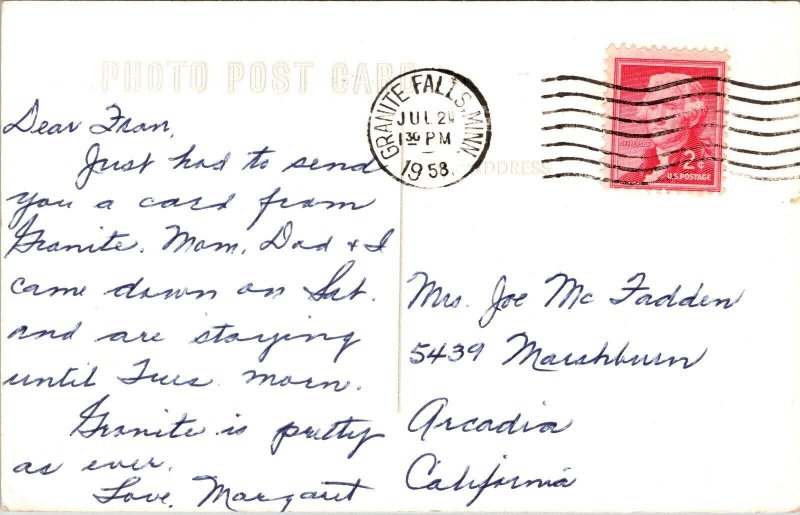 PHOTO POST CARD
Dear Fran,
Just had to send
you a card from
Granite. Mom, Dad & I
came down on Sat.
and are staying
until Tues. morn.
Granite is pretty
as ever.
Love, Margaret
GRANITE FALLS, MINN.
JUL 2
1 30 PM
1958
ADDRESS
JEFFERSON
2¢
U.S. POSTAGE
Mrs. Joe Mc Fadden
5439 Marshburn
Arcadia
California